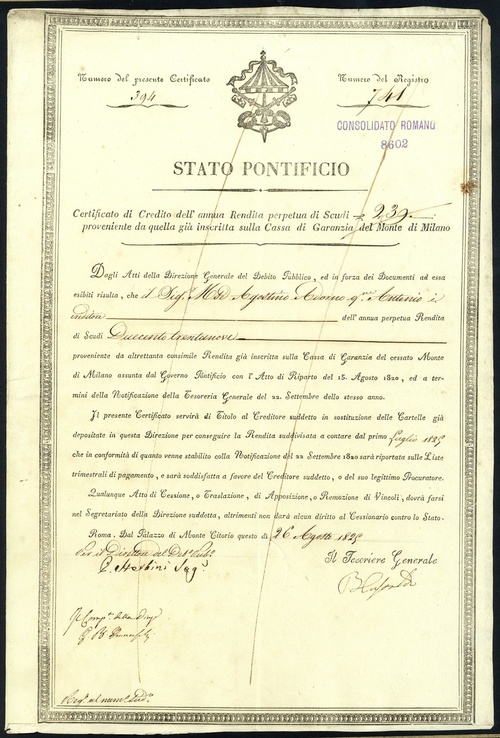 Numero del presente Certificato
394
Numero del Registro
741
CONSOLIDATO ROMANO
8602
STATO PONTIFICIO
Certificato di Credito dell'annua Rendita perpetua di Scudi 239
proveniente da quella già inscritta sulla Cassa di Garanzia del Monte di Milano
Dagli Atti della Direzione Generale del Debito Pubblico, ed in forza dei Documenti ad essa
esibiti risulta, che il Sig.r Agostino Adorno q.m Antonio è
dell'annua perpetua Rendita
di Scudi Duecento trentanove
proveniente da altrettanta consimile Rendita già inscritta sulla Cassa di Garanzia del cessato Monte
di Milano assunta dal Governo Pontificio con l'Atto di Riparto del 15. Agosto 1820, ed a ter-
mini della Notificazione della Tesoreria Generale del 22. Settembre dello stesso anno.
Il presente Certificato servirà di Titolo al Creditore suddetto in sostituzione delle Cartelle già
depositate in questa Direzione per conseguire la Rendita suddivisata a contare dal primo luglio
che in conformità di quanto venne stabilito colla Notificazione del 22 Settembre 1820 sarà riportata sulle Liste
trimestrali di pagamento, e sarà soddisfatta a favore del Creditore suddetto, o del suo legittimo Procuratore.
Qualunque Atto di Cessione, o Traslazione, di Apposizione, o Remozione di Vincoli, dovrà farsi
nel Segretariato della Direzione suddetta, altrimenti non darà alcun diritto al Cessionario contro lo Stato.
Roma. Dal Palazzo di Monte Citorio questo dì 26 Agosto
Per il Direttore del Deb. Pub.
Il Tesoriere Generale